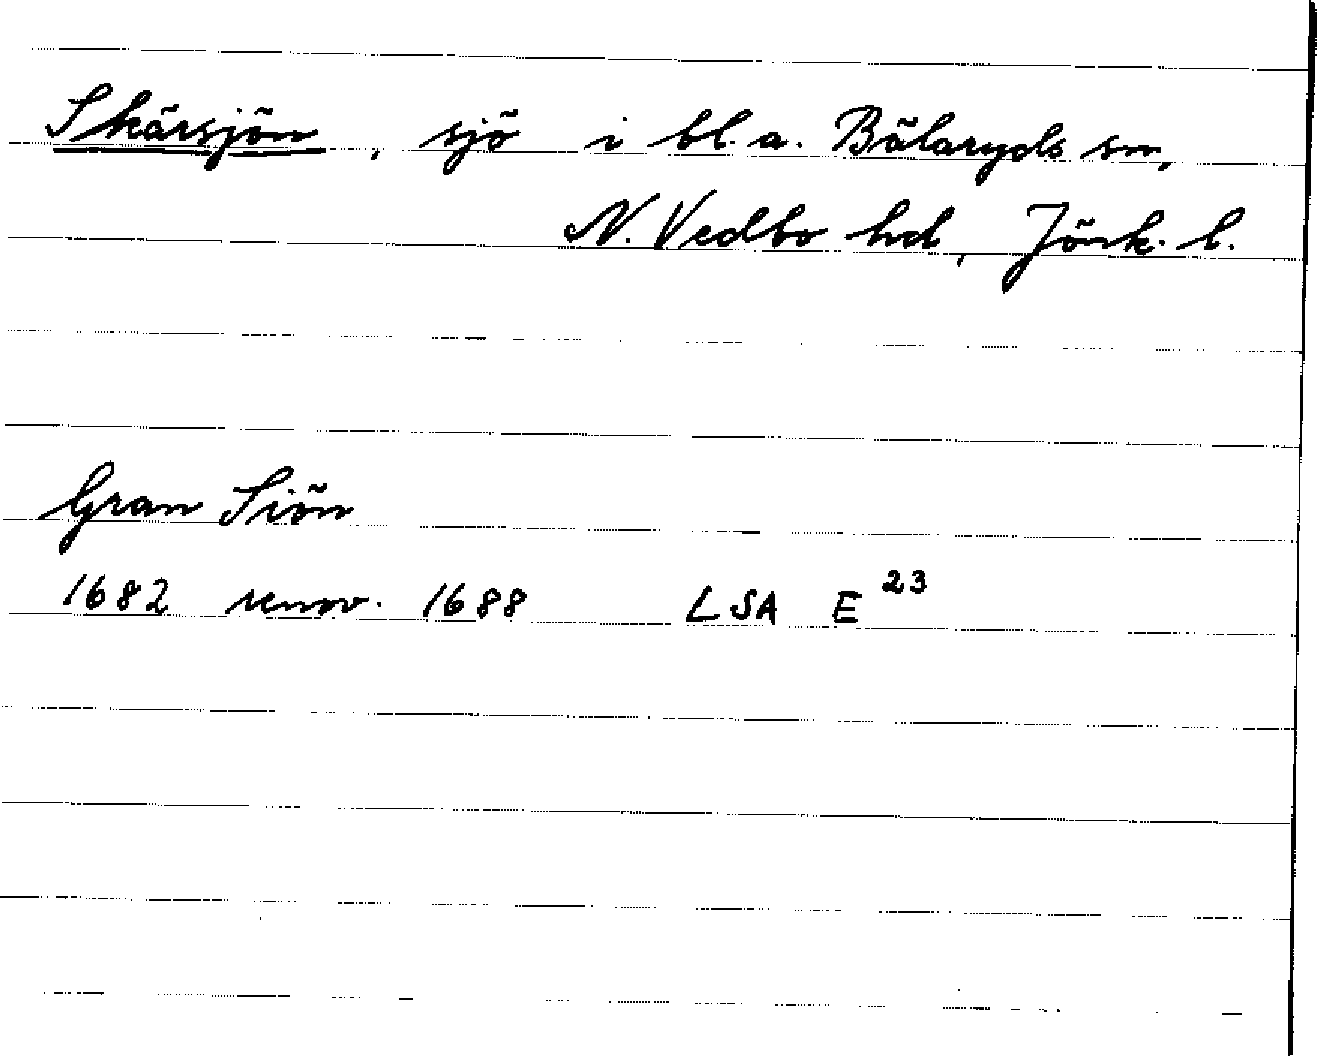 Skärsjön, sjö i bl.a. Bälaryds sn,
N. Vedbo hd, Jönk. l.
Gran Siön
1682 renov. 1688 LSA E 23